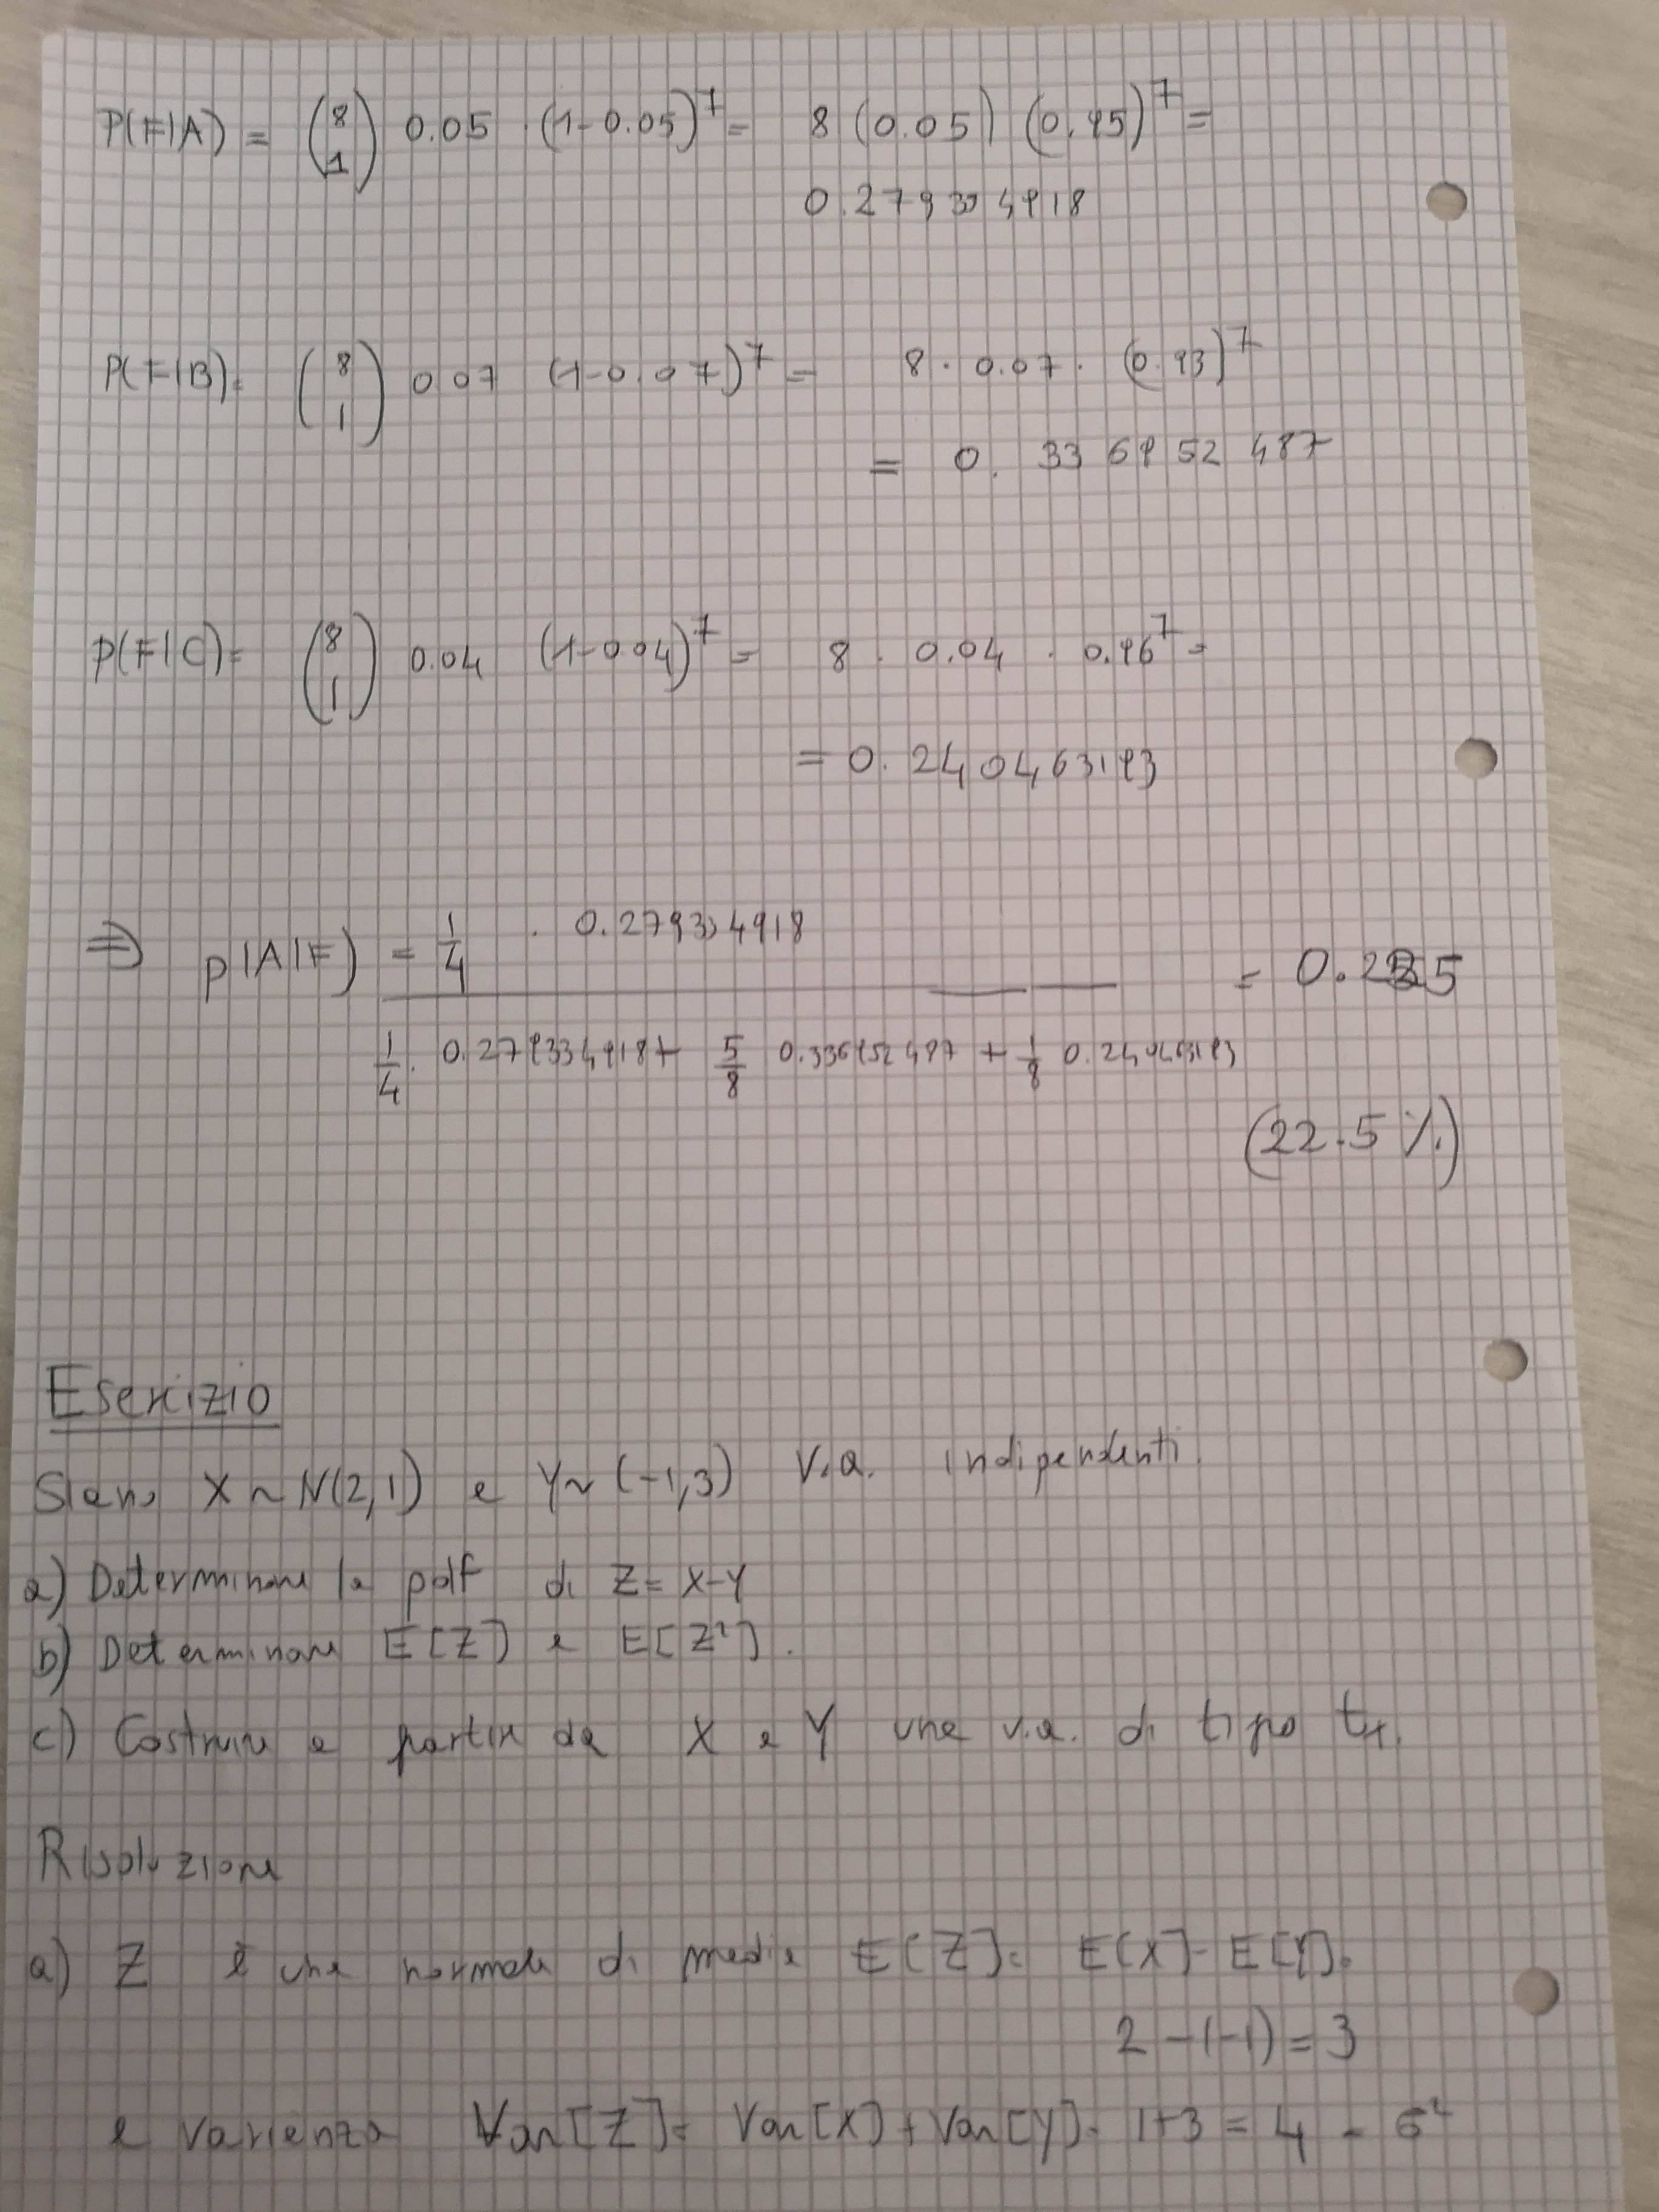 P(F|A) = (8 1) 0.05 · (1-0.05)^7 = 8 (0.05) (0.95)^7 =
0.279334918
P(F|B) = (8 1) 0.07 (1-0.07)^7 = 8 · 0.07 · (0.93)^7
= 0.336952487
P(F|C) = (8 1) 0.04 (1-0.04)^7 = 8 · 0.04 · 0.96^7 =
= 0.240463193
⇒ P(A|F) = 1/4 · 0.279334918 = 0.225
1/4 · 0.279334918 + 5/8 0.336952487 + 1/8 0.240463193
(22.5 %)
Esercizio
Siano X ~ N(2,1) e Y ~ (-1,3) v.a. indipendenti.
a) Determinare la pdf di Z = X-Y
b) Determinare E[Z] e E[Z²].
c) Costruire a partire da X e Y una v.a. di tipo t₁.
Risoluzione
a) Z è una normale di media E[Z] = E[X] - E[Y] =
2 - (-1) = 3
e varianza Var[Z] = Var[X] + Var[Y] = 1+3 = 4 = σ²